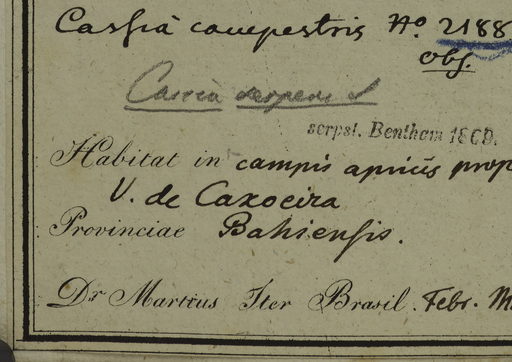 Cassia campestris No. 2188
Obs.
Cassia serpens L
scrpst. Bentham 1869.
Habitat in campis apricis prop
V. de Caxoeira
Provinciae Bahiensis.
Dr Martius Iter Brasil. Febr. M